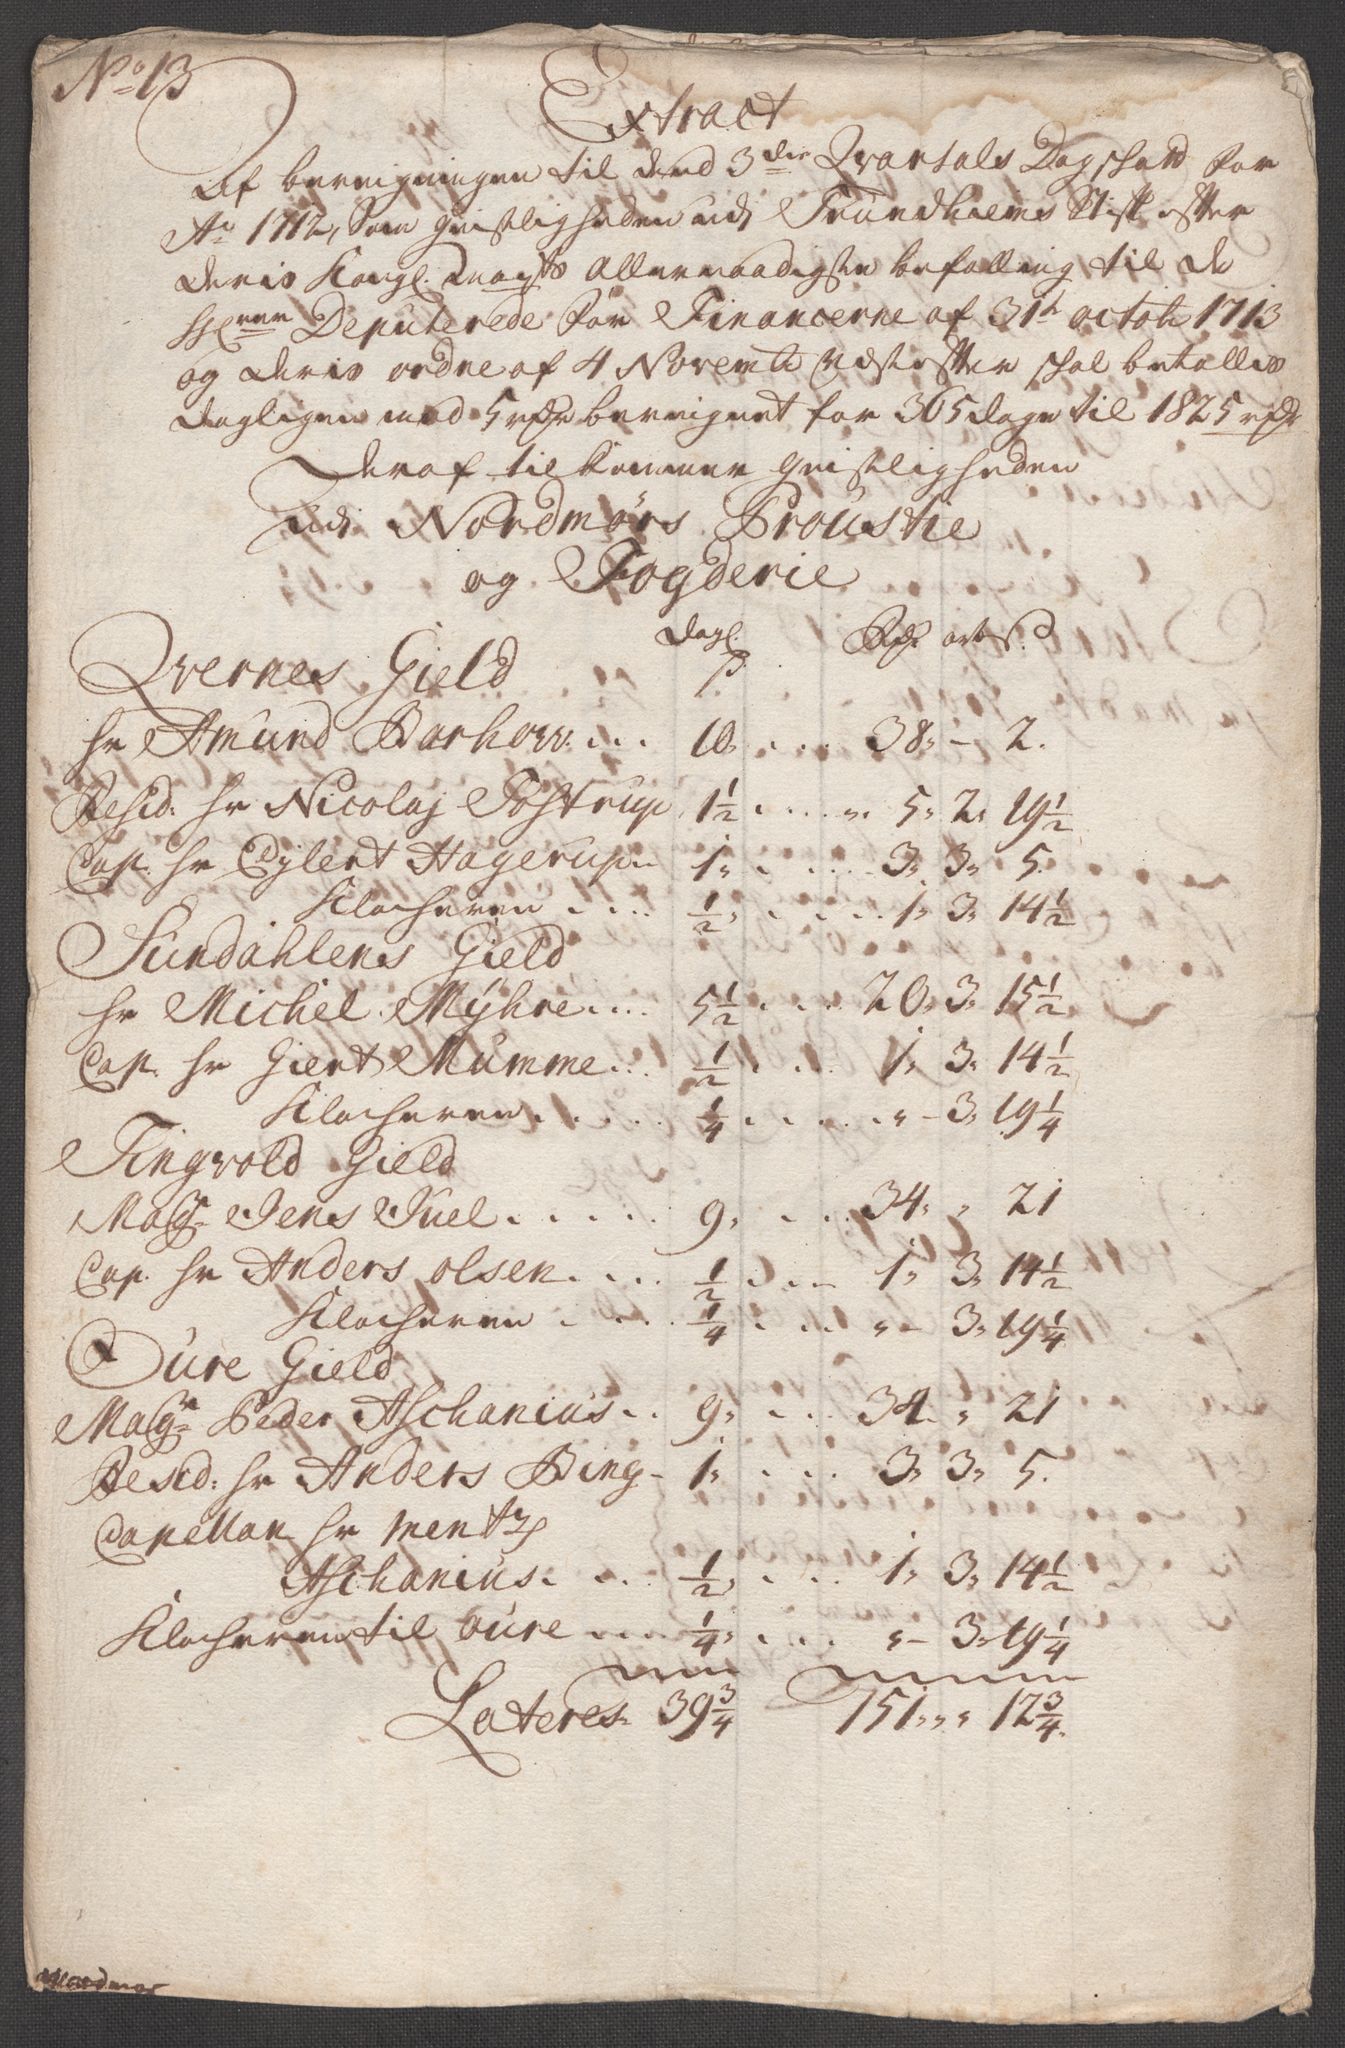 No 13
Extract
Af beregningen til dend 3die Qvartals Dagschatt for
Ao 1712, som Geistligheden udi Trundhiems Stift efter
deris Kongl. Mayts allernaadigste befalling til de
Hrrer Deputerede for Financerne af 31te octob. 1713
og deris ordre af 4 Novemb. Næstefter schal betallis
dagligen med 5 rdr beregnet for 365 dage til 1825 rdr
Deraf tilkommer Geistligheden
udi Nordmørs Proustie
og Fogderie
Dagl. Rdr. ort ß.
Qvernes Gield ß.
hr Amund Barhow.... 10, .... 38, - 2.
Resid: hr Nicolaj Tostrup 1½ .... 5, 2, 19½
Cap. hr Eylert Hagerup 1, .... 3, 3, 5.
Klocheren .... ½, .... 1, 3, 14½
Sundahlens Gield
hr Michel Myhre.... 5½ .... 20, 3, 15½
Cap. hr Giert Mumme... ½ .... 1, 3, 14½
Klocheren ..... ¼ ..... „ - 3, 19¼
Tingvold Gield
Magr Jens Juel ...... 9, .... 34, „ 21
Cap. hr Anders olsen.... ½ .... 1, 3, 14½
Klocheren .... ¼ .... „ - 3, 19¼
Oure Gield
Magr Peder Aschanius.. 9, ... 34. „ 21
Resid: hr Anders Bing - 1, .... 3, 3, 5.
Capellan hr mentz
Aschanius. .... ½, .... 1, 3, 14½
Klocheren til oure .... ¼, .... „ - 3, 19¼
Lateres 39¾ 151, „ „ 12¾.
Nordmør